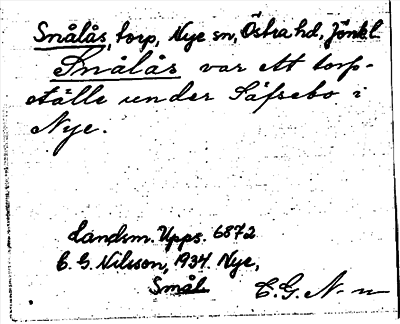 Smålås, torp, Nye sn, Östra hd, Jönk.l.
Smålås var ett torp-
ställe under Säfsebo i
Nye.
Landsm. Upps. 6872
E. G. Nilsson, 1934. Nye,
Smål.
E. G. N-n